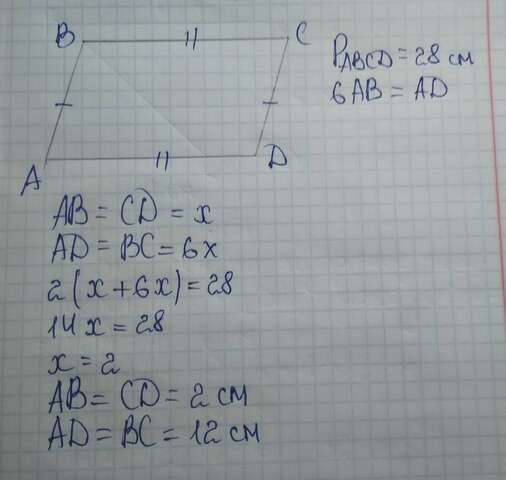 B
C
A
D
P ABCD = 28 см
6AB = AD
AB = CD = x
AD = BC = 6x
2(x+6x)=28
14x = 28
x = 2
AB = CD = 2 см
AD = BC = 12 см